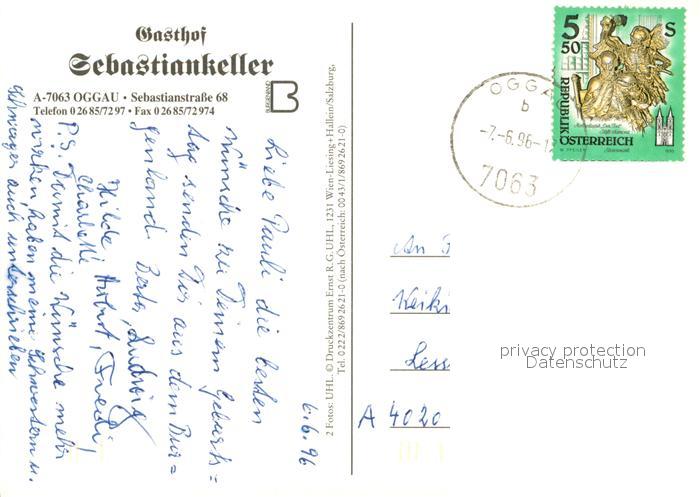 Gasthof
Sebastiankeller
A-7063 OGGAU • Sebastianstraße 68
Telefon 0 26 85/72 97 • Fax 0 26 85/72 974
6.6.96
Liebe Pauli die besten
Wünsche zu Deinem Geburts=
tag senden Dir aus dem Bur=
genland. Berta, Ludwig
Hilde, Herbert, Friedl,
Charlotte
P.S. Damit die Wünsche mehr
wirken, haben meine Schwestern u.
Schwager auch unterschrieben
2 Fotos: UHL. © Druckzentrum Ernst R.G. UHL, 1231 Wien-Liesing + Hallein/Salzburg,
Tel. 0 222/869 26 21-0 (nach Österreich: 00 43/1/869 26 21-0)
OGGAU
b
-7.-6.96-1
7063
5 50 S
REPUBLIK
ÖSTERREICH
An
Less
A 4020
privacy protection
Datenschutz